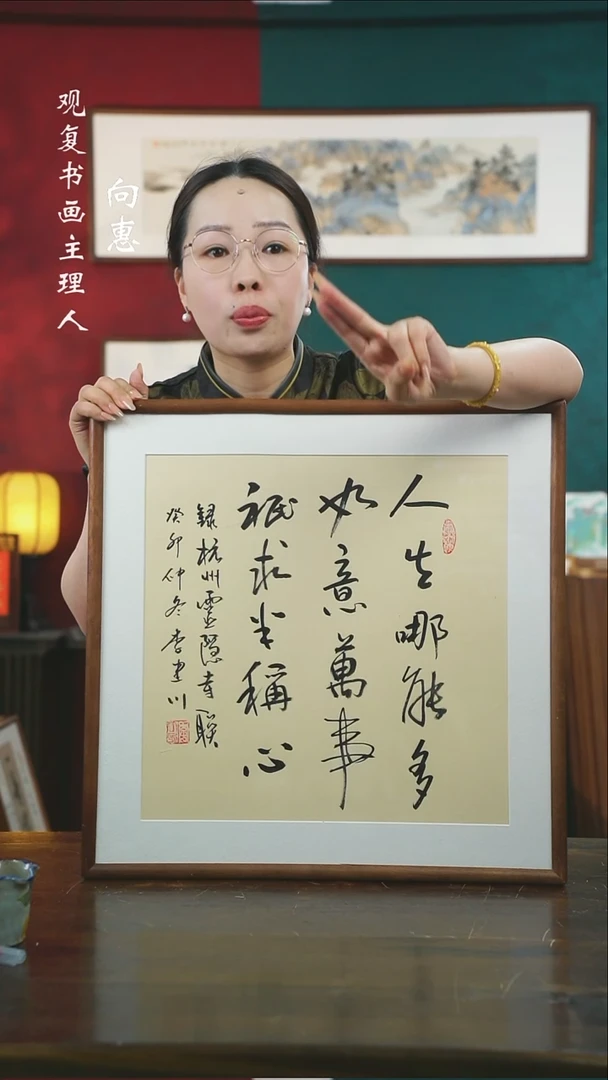 观复书画主理人
向惠
人生哪能多
如意萬事
祇求半稱心
録杭州靈隱寺聯
癸卯仲冬李建川